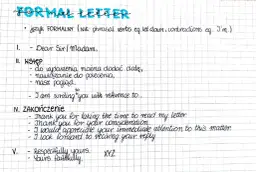 FORMAL LETTER
• JĘZYK FORMALNY (NIE phrasal verbs eg let down, contractions eg. I'm)
I. - Dear Sir/Madam,
II. WSTĘP
- do upoważnienia można dodać datę,
- nawiązanie do polecenia,
- nasz pogląd.
- I am writing to you with reference to...
IV. ZAKOŃCZENIE
- Thank you for taking the time to read my letter
- Thank you for your consideration
- I would appreciate your immediate attention to this matter
- I look forward to receiving your reply
V. - Respectfully yours,
- Yours faithfully,
XYZ